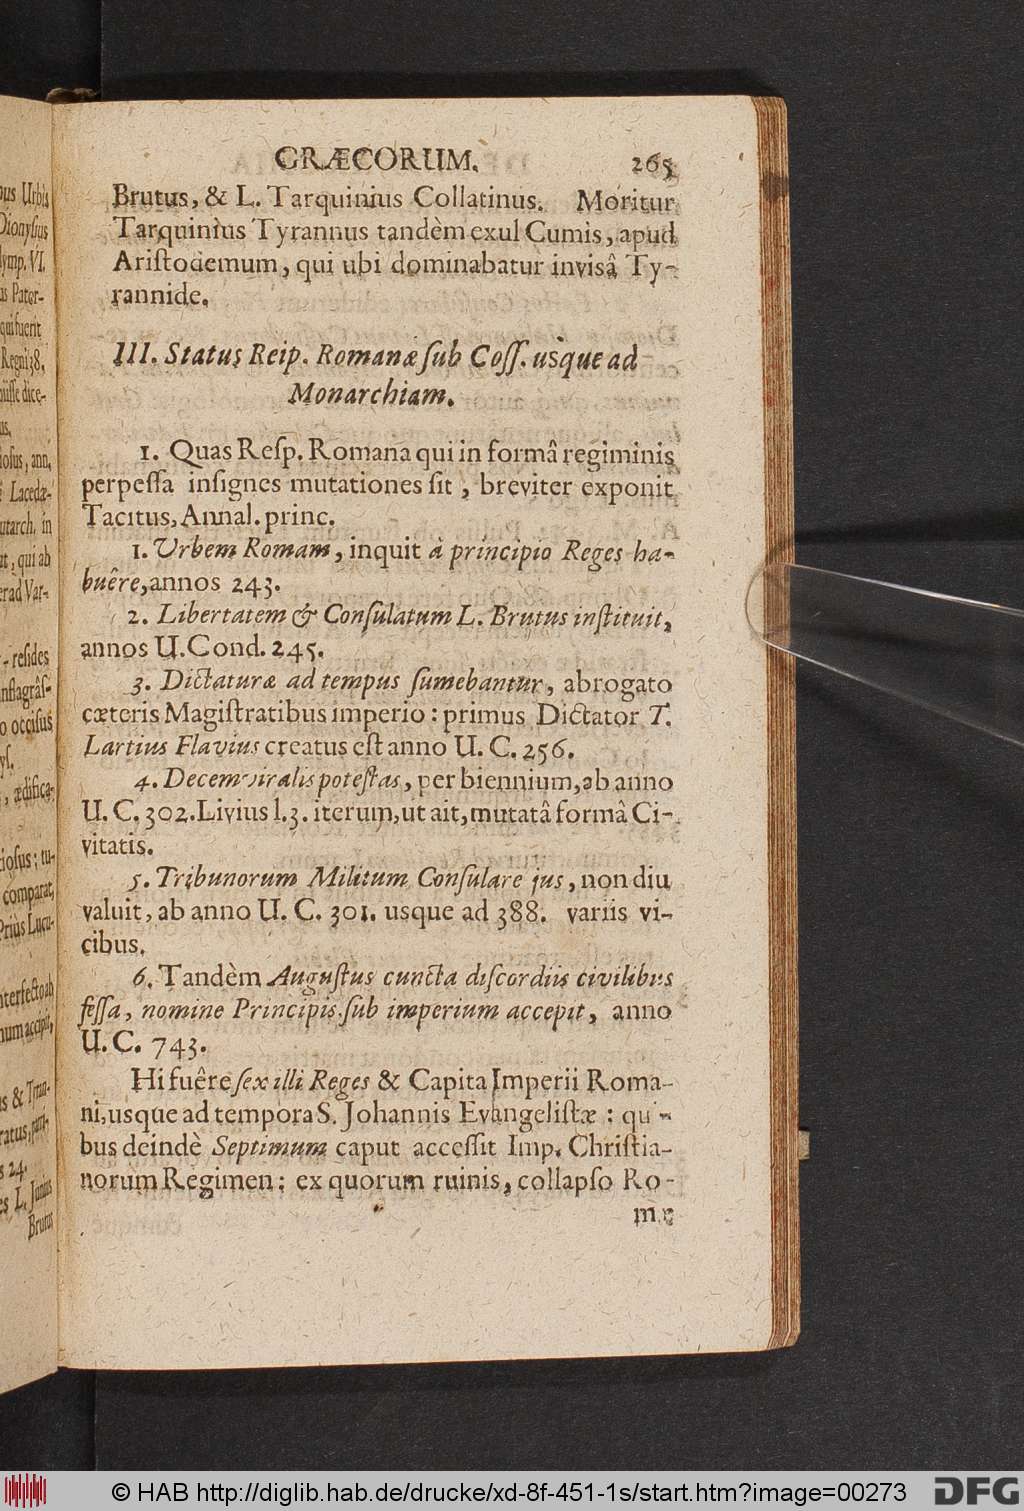 GRÆCORUM. 265
Brutus, & L. Tarquinius Collatinus. Moritur
Tarquinius Tyrannus tandèm exul Cumis, apud
Aristodemum, qui ubi dominabatur invisâ Ty-
rannide.
III. Status Reip. Romanæ sub Coss. usque ad
Monarchiam.
1. Quas Resp. Romana qui in formâ regiminis
perpessa insignes mutationes sit, breviter exponit
Tacitus, Annal. princ.
1. Urbem Romam, inquit à principio Reges ha-
buêre, annos 243.
2. Libertatem & Consulatum L. Brutus instituit,
annos U. Cond. 245.
3. Dictaturæ ad tempus sumebantur, abrogato
cæteris Magistratibus imperio: primus Dictator T.
Lartius Flavius creatus est anno U. C. 256.
4. Decemviralis potestas, per biennium, ab anno
U. C. 302. Livius l. 3. iterum, ut ait, mutatâ formâ Ci-
vitatis.
5. Tribunorum Militum Consulare jus, non diu
valuit, ab anno U. C. 301. usque ad 388. variis vi-
cibus.
6. Tandèm Augustus cuncta discordiis civilibus
fessa, nomine Principis sub imperium accepit, anno
U. C. 743.
Hi fuêre sex illi Reges & Capita Imperii Roma-
ni, usque ad tempora S. Johannis Evangelistæ: qu-
bus deindè Septimum caput accessit Imp. Christia-
norum Regimen: ex quorum ruinis, collapso Ro-
bus Urbis
Dionysius
lymp. VI.
as Pater-
qui fuerit
Regni 38.
us.
iosus, ann.
Lacedæ-
utarch. in
at, qui ab
erad Var-
- resides
inflagrâs-
o occisus
ys.
, ædifica-
iosus: tu-
comparat,
Priùs Lucu-
nterfecto ab
num accipit,
s & Tyran-
s 24.
es L. Junius
Brutus
© HAB http://diglib.hab.de/drucke/xd-8f-451-1s/start.htm?image=00273
DFG